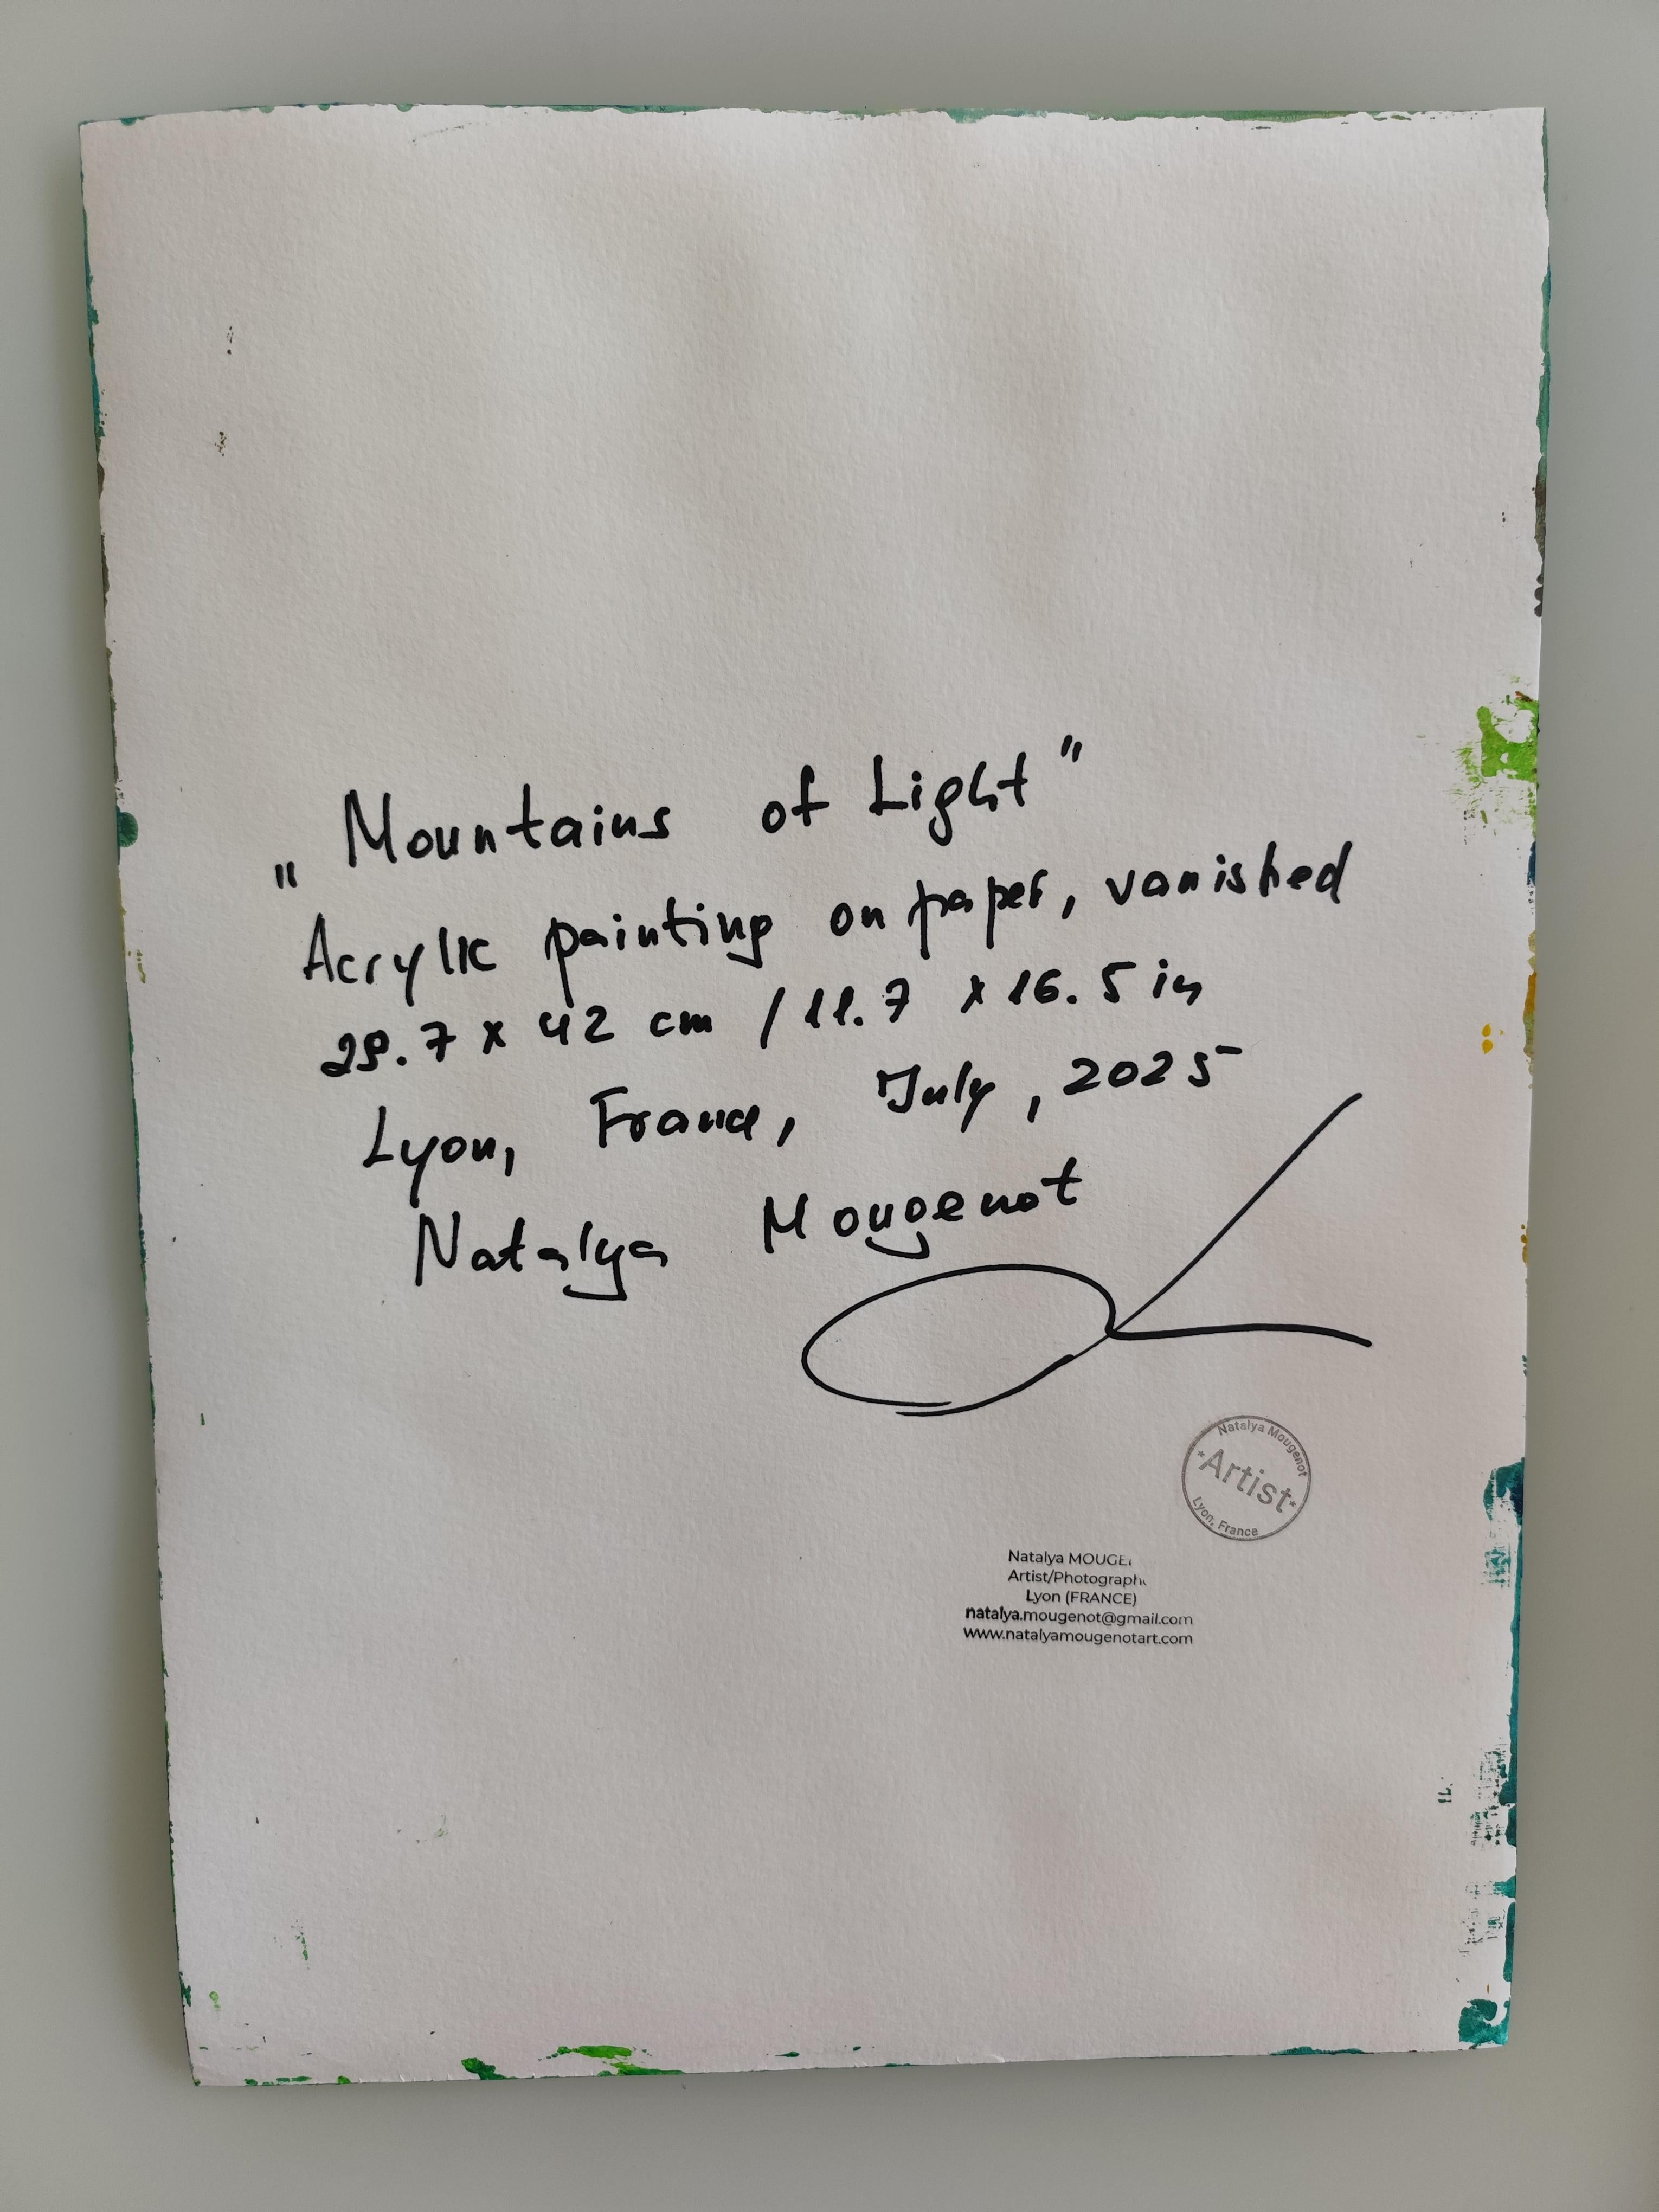 „Mountains of Light"
Acrylic painting on paper, vanished
29.7 x 42 cm / 11.7 x 16.5 in
Lyon, France, July, 2025
Natalya Mougenot
Natalya Mougenot
*Artist*
Lyon, France
Natalya MOUGE
Artist/Photograph
Lyon (FRANCE)
natalya.mougenot@gmail.com
www.natalyamougenotart.com